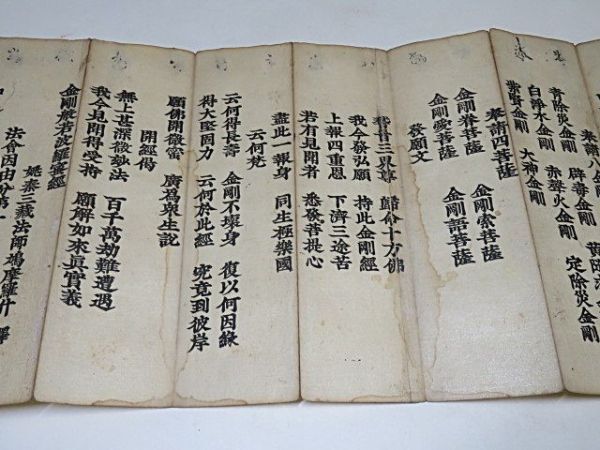 奉請八金剛
青除災金剛　辟毒金剛　黃隨求金剛
白淨水金剛　赤聲火金剛　定除災金剛
紫賢金剛　大神金剛
奉請四菩薩
金剛眷菩薩　金剛索菩薩
金剛愛菩薩　金剛語菩薩
發願文
稽首三界尊　歸命十方佛
我今發弘願　持此金剛經
上報四重恩　下濟三途苦
若有見聞者　悉發菩提心
盡此一報身　同生極樂國
云何梵
云何得長壽　金剛不壞身　復以何因緣
得大堅固力　云何於此經　究竟到彼岸
願佛開微密　廣為眾生說
開經偈
無上甚深微妙法　百千萬劫難遭遇
我今見聞得受持　願解如來真實義
金剛般若波羅蜜經
姚秦三藏法師鳩摩羅什　譯
法會因由分第一